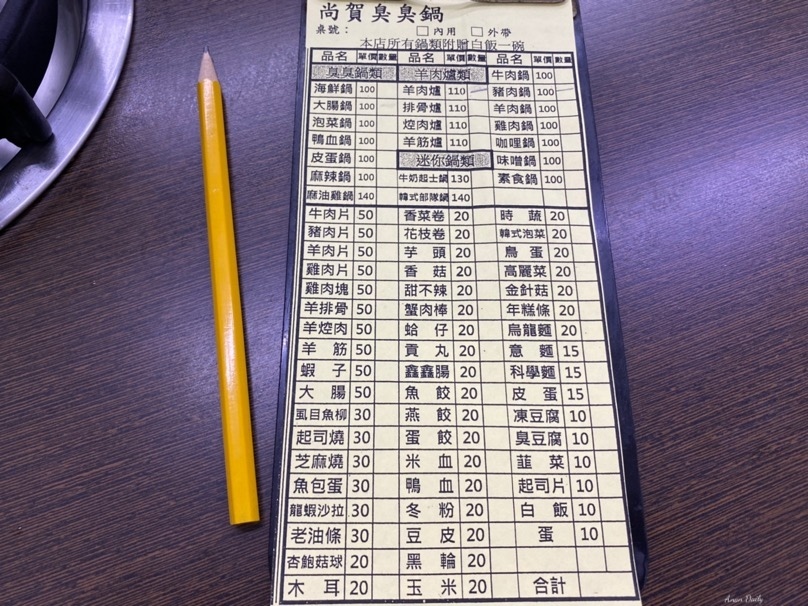 尚賀臭臭鍋
桌號： □內用 □外帶
本店所有鍋類附贈白飯一碗
品名 單價 數量 品名 單價 數量 品名 單價 數量
臭臭鍋類 羊肉爐類 牛肉鍋 100
海鮮鍋 100 羊肉爐 110 豬肉鍋 100
大腸鍋 100 排骨爐 110 羊肉鍋 100
泡菜鍋 100 焢肉爐 110 雞肉鍋 100
鴨血鍋 100 羊筋爐 110 咖哩鍋 100
皮蛋鍋 100 迷你鍋類 味噌鍋 100
麻辣鍋 100 牛奶起士鍋 130 素食鍋 100
麻油雞鍋 140 韓式部隊鍋 140
牛肉片 50 香菜卷 20 時蔬 20
豬肉片 50 花枝卷 20 韓式泡菜 20
羊肉片 50 芋頭 20 鳥蛋 20
雞肉片 50 香菇 20 高麗菜 20
雞肉塊 50 甜不辣 20 金針菇 20
羊排骨 50 蟹肉棒 20 年糕條 20
羊焢肉 50 蛤仔 20 烏龍麵 20
羊筋 50 貢丸 20 意麵 15
蝦子 50 鑫鑫腸 20 科學麵 15
大腸 50 魚餃 20 皮蛋 15
虱目魚柳 30 燕餃 20 凍豆腐 10
起司燒 30 蛋餃 20 臭豆腐 10
芝麻燒 30 米血 20 韮菜 10
魚包蛋 30 鴨血 20 起司片 10
龍蝦沙拉 30 冬粉 20 白飯 10
老油條 30 豆皮 20 蛋 10
杏鮑菇球 20 黑輪 20
木耳 20 玉米 20 合計
Anan Daily